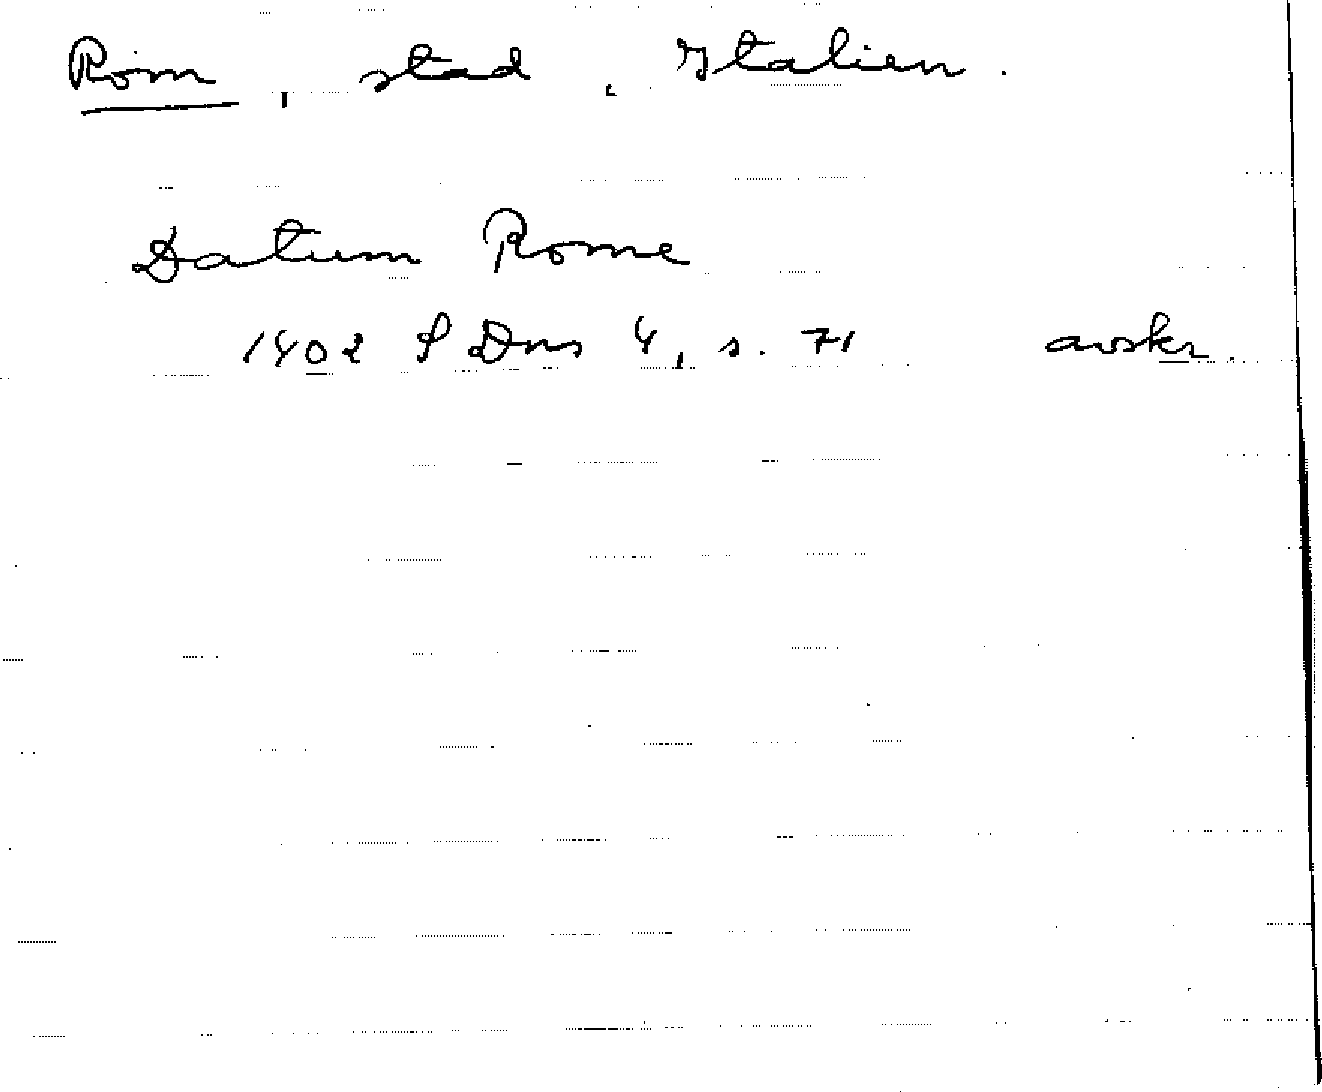 Rom, stad, Italien.
Datum Rome
1402 S Dns 4, s. 71 avskr.